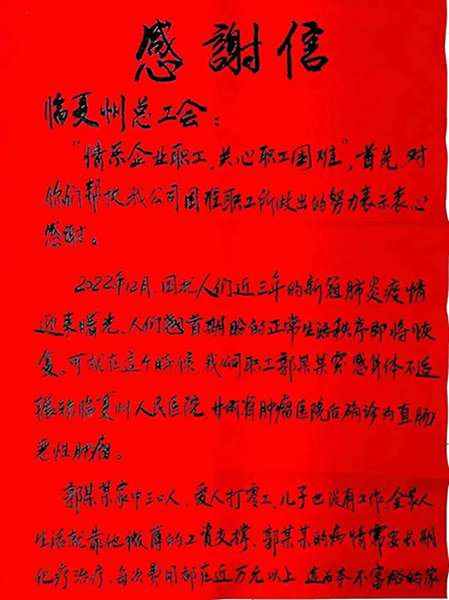 感謝信
临夏州总工会：
"情系企业职工，关心职工困难"，首先，对
你们帮扶我公司困难职工所做出的努力表示衷心
感谢。
2022年12月，困扰人们近三年的新冠肺炎疫情
迎来曙光，人们翘首期盼的正常生活秩序即将恢
复。可就在这个时候，我公司职工郭某某突感身体不适
辗转临夏州人民医院、甘肃省肿瘤医院后确诊为直肠
恶性肿瘤。
郭某某家中三口人，爱人打零工，儿子也没有工作，全家人
生活就靠他微薄的工资支撑，郭某某的病情需要长期
化疗治疗，每次费用都在近万元以上，这为本不富裕的家